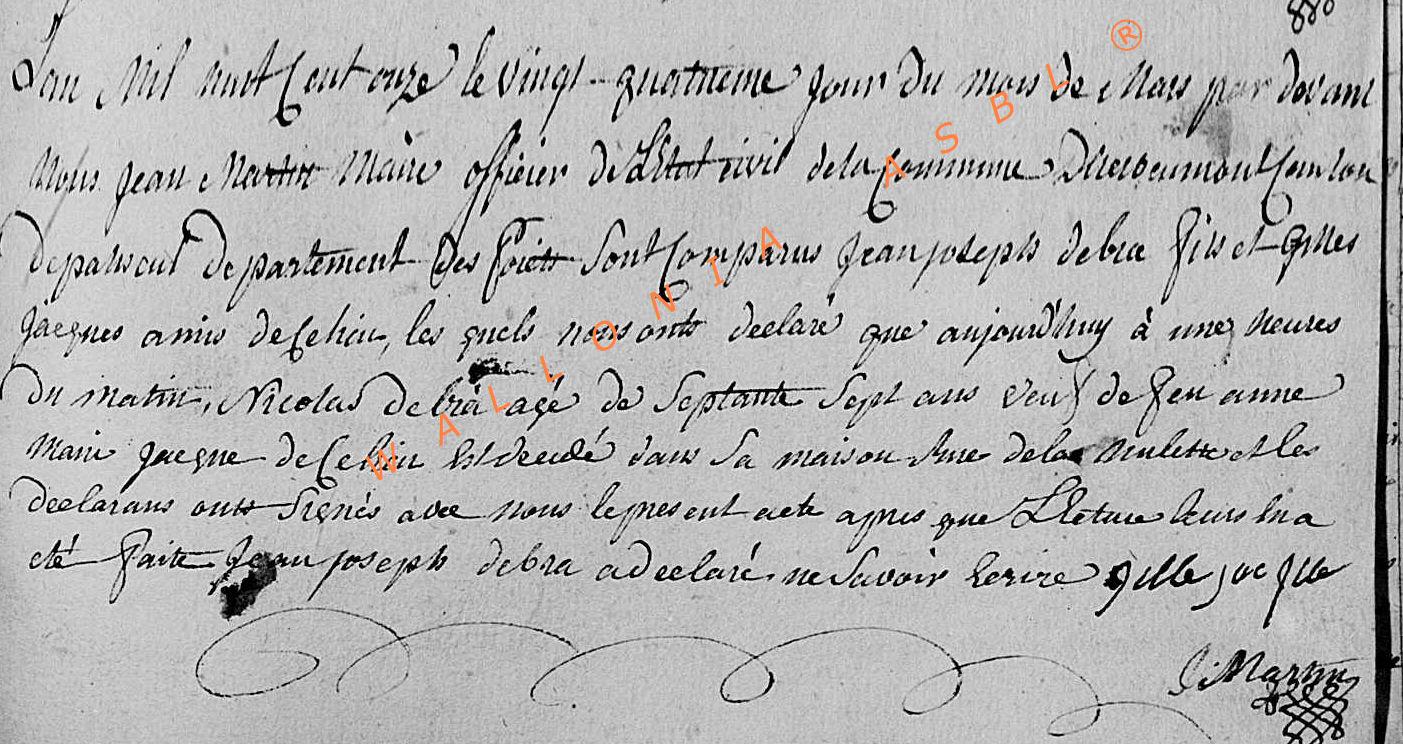 880
L'an Mil huit Cent onze le vingt quatrieme jour du mois de Mars par devant
Nous jean Martin Maire officier de L'Etat civil de la Commune Canton
depaliseul departement des foiets sont Comparus jean joseph debra fils et Gilles
jacques amis de Cehin, les quels nous onts declaré que aujourd'huy à une heures
du matin, Nicolas debra agé de Septante Sept ans veuf de feu anne
Marie jacque de Cehin est decedé dans sa maison Rue de la mulette et les
declarans onts Signés avec nous le present acte apres que Lecture leurs en a
été faite jean joseph debra a declaré ne Savoir Ecrire gille
J: Martin
WALLONIA ASBL ®